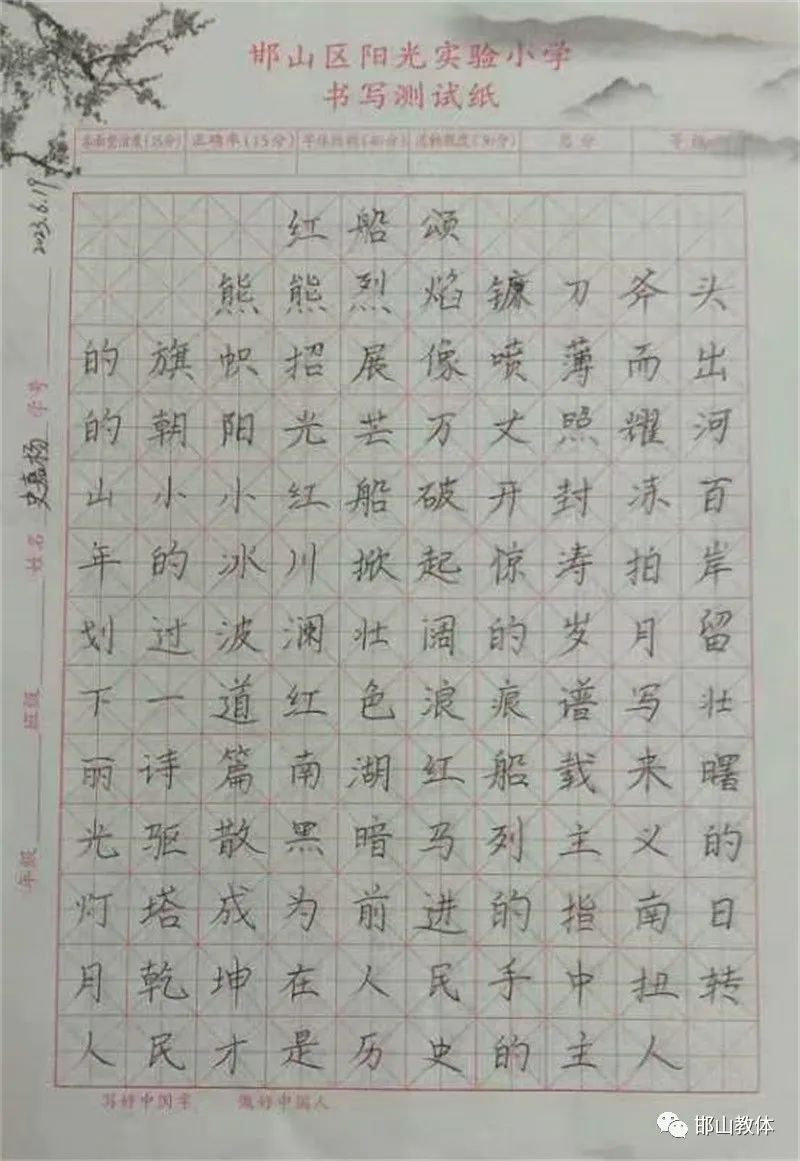 邯山区阳光实验小学
书写测试纸
正确率(15分)
总分
等级
2023.6.19
学号
史嘉杨
姓名
班级
年级
红船颂
熊熊烈焰镰刀斧头
的旗帜招展像喷薄而出
的朝阳光芒万丈照耀河
山小小红船破开封冻百
年的冰川掀起惊涛拍岸
划过波澜壮阔的岁月留
下一道红色浪痕谱写壮
丽诗篇南湖红船载来曙
光驱散黑暗马列主义的
灯塔成为前进的指南日
月乾坤在人民手中扭转
人民才是历史的主人
写好中国字 做好中国人
邯山教体